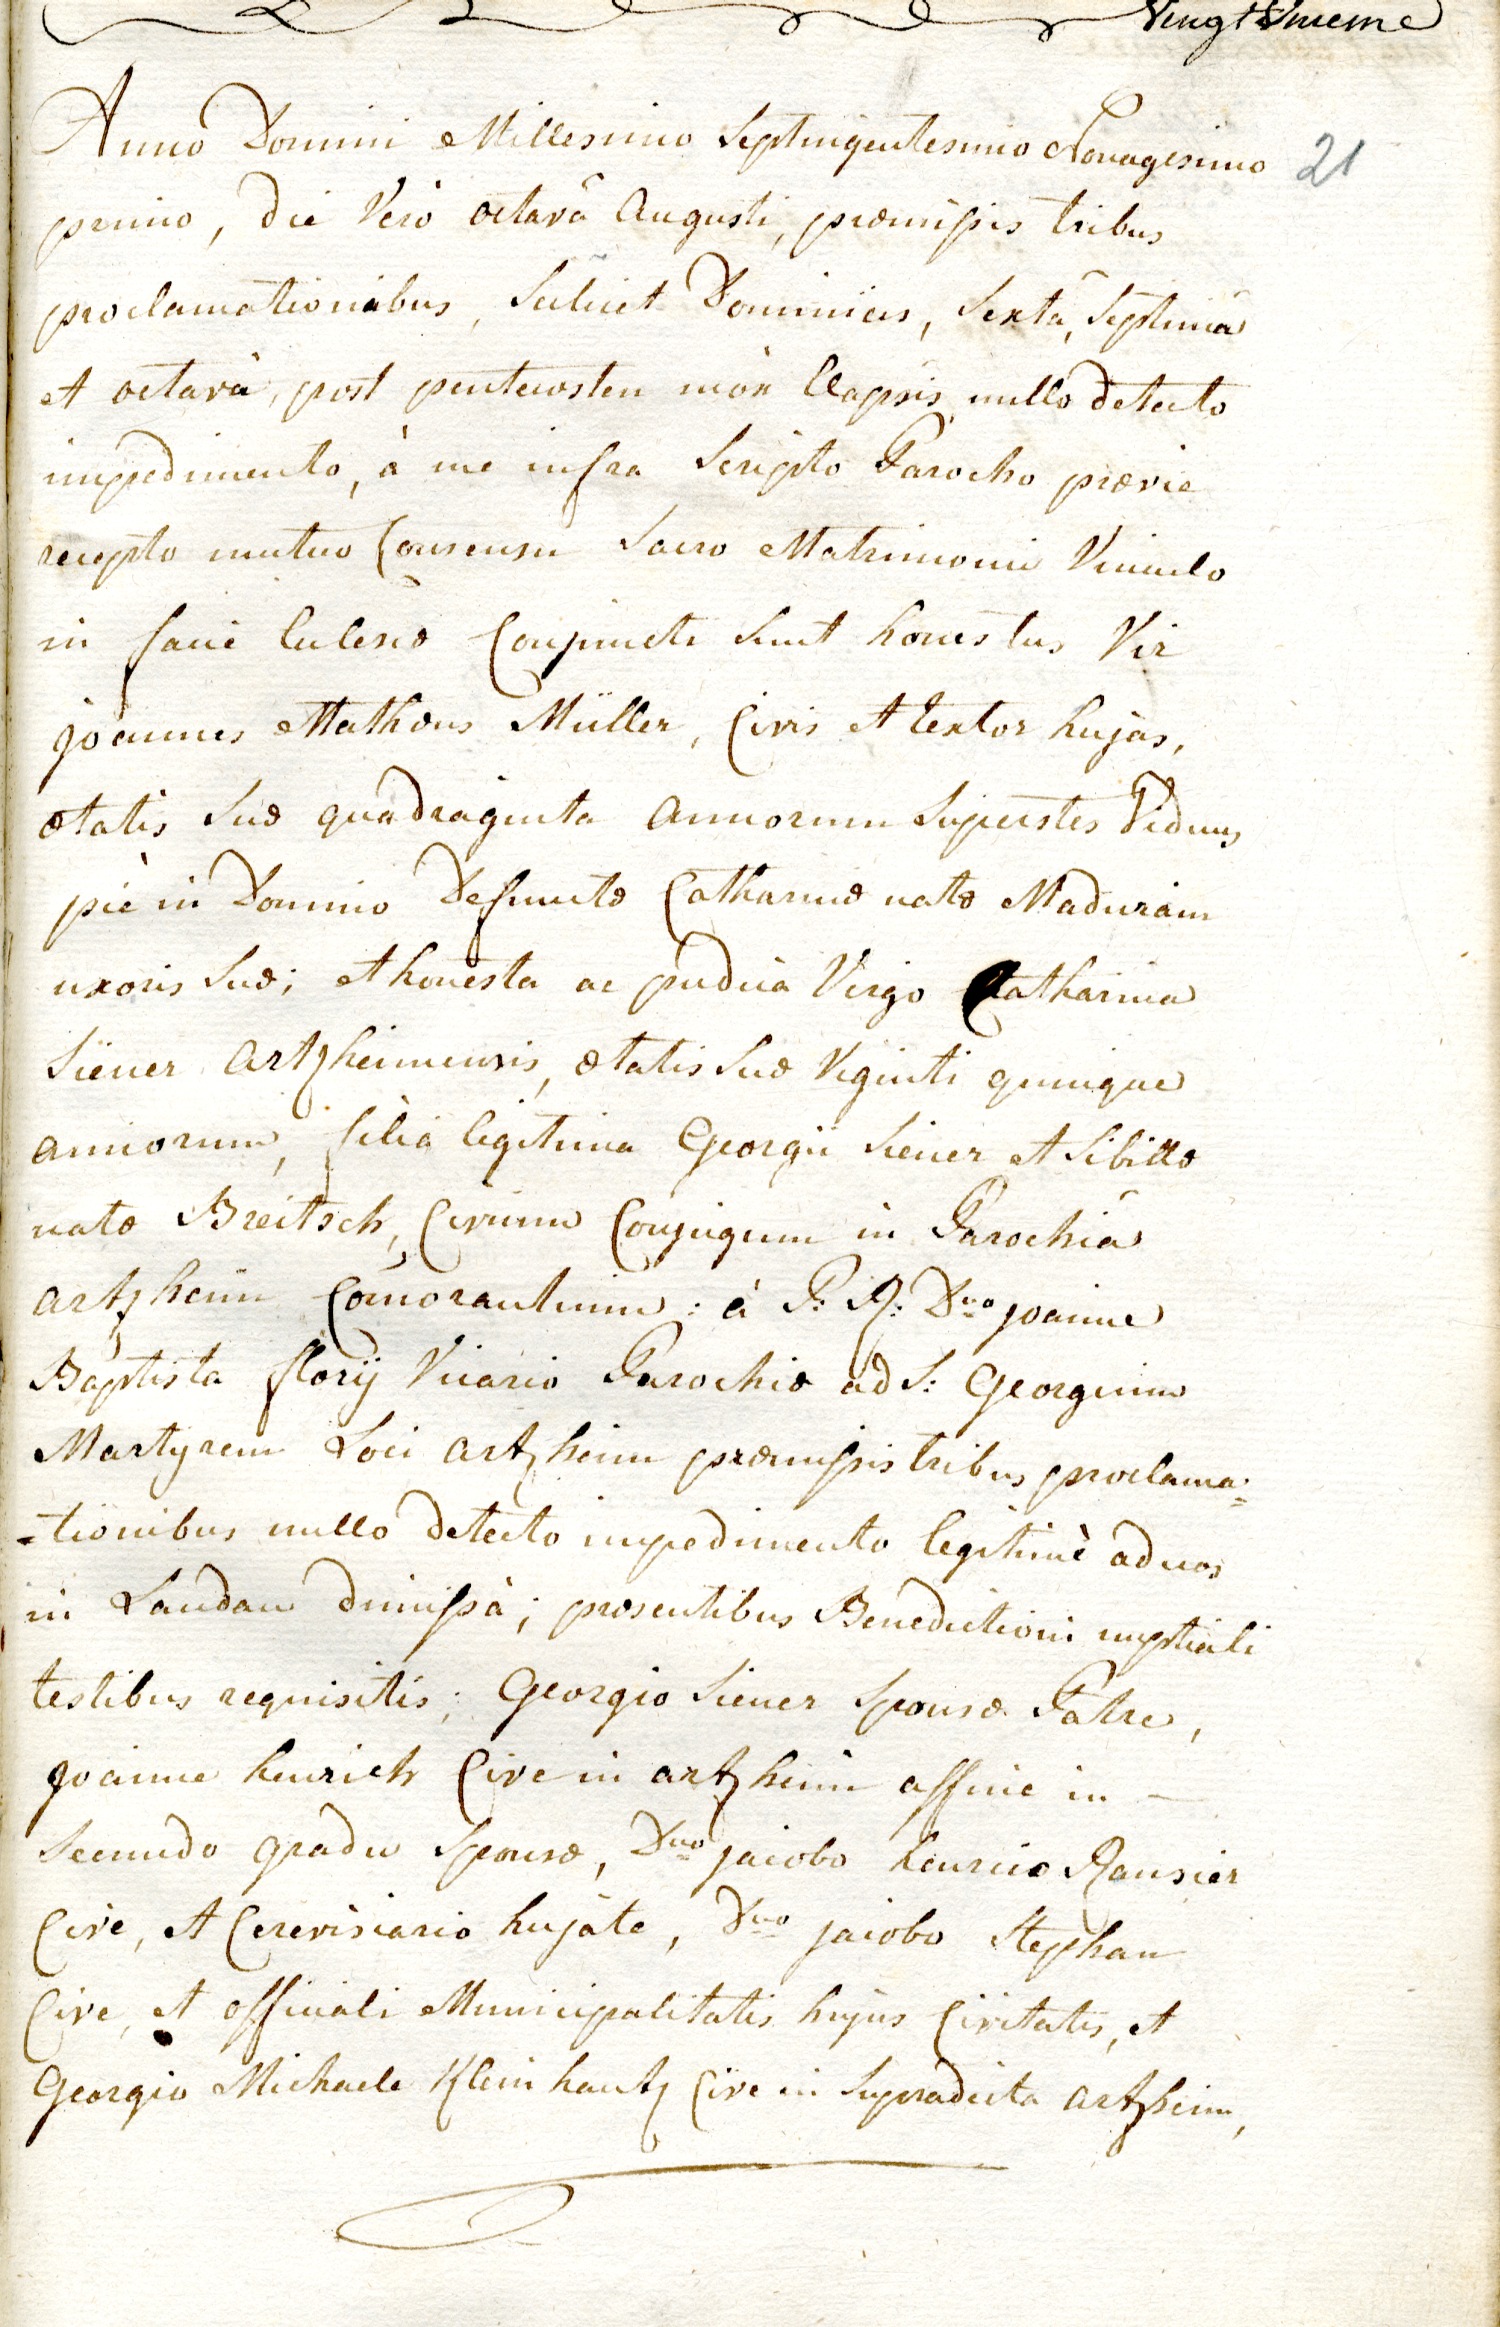 Vingt Unieme
21
Anno Domini Millesimo Septingentesimo Nonagesimo
primo, die Verò octavâ Augusti, præmissis tribus
proclamationibus, Scilicet Dominicis, Sextâ, Septimâ
et octavâ, post pentecosten mòx Elapsis, nullo detecto
impedimento, à me infra Scripto Parocho prævie
recepto mutuo Consensu Sacro Matrimonii Vinculo
in facie Ecclesiæ Conjuncti Sunt honestus Vir
joannes Mathæus Müller, Civis et textor hujas,
ætatis Suæ quadraginta Annorum Superstes Viduus
piè in Domino Defunctæ Catharinæ natæ Madurain
uxoris Suæ; et honesta ac pudica Virgo Catharina
Siener Artzheimensis, ætatis Suæ Viginti quinque
annorum, filia legitima Georgii Siener et Sibillæ
natæ Breitsch, Civium Conjugum in Parochiâ
Artzheim Com̃orantium: à P: R: Dno joanne
Baptista florij Vicario Parochiæ ad S: Georgium
Martyrem Loci Artzheim præmissis tribus proclama=
=tionibus nullo detecto impedimento legitimè ad nos
in Landau dimissà; præsentibus Benedictioni nuptiali
testibus requisitis; Georgio Siener Sponsæ Patre,
joanne henrich Cive in artzheim affine in —
Secundo gradu Sponsæ, Dno jacobo henrico Ransier
Cive, et Cerevisiario hujate, Dno jacobo Stephan
Cive, et officiali Municipalitatis hujus Civitatis, et
Georgio Michaele Kleinhantz Cive in Supradicta Artzheim,